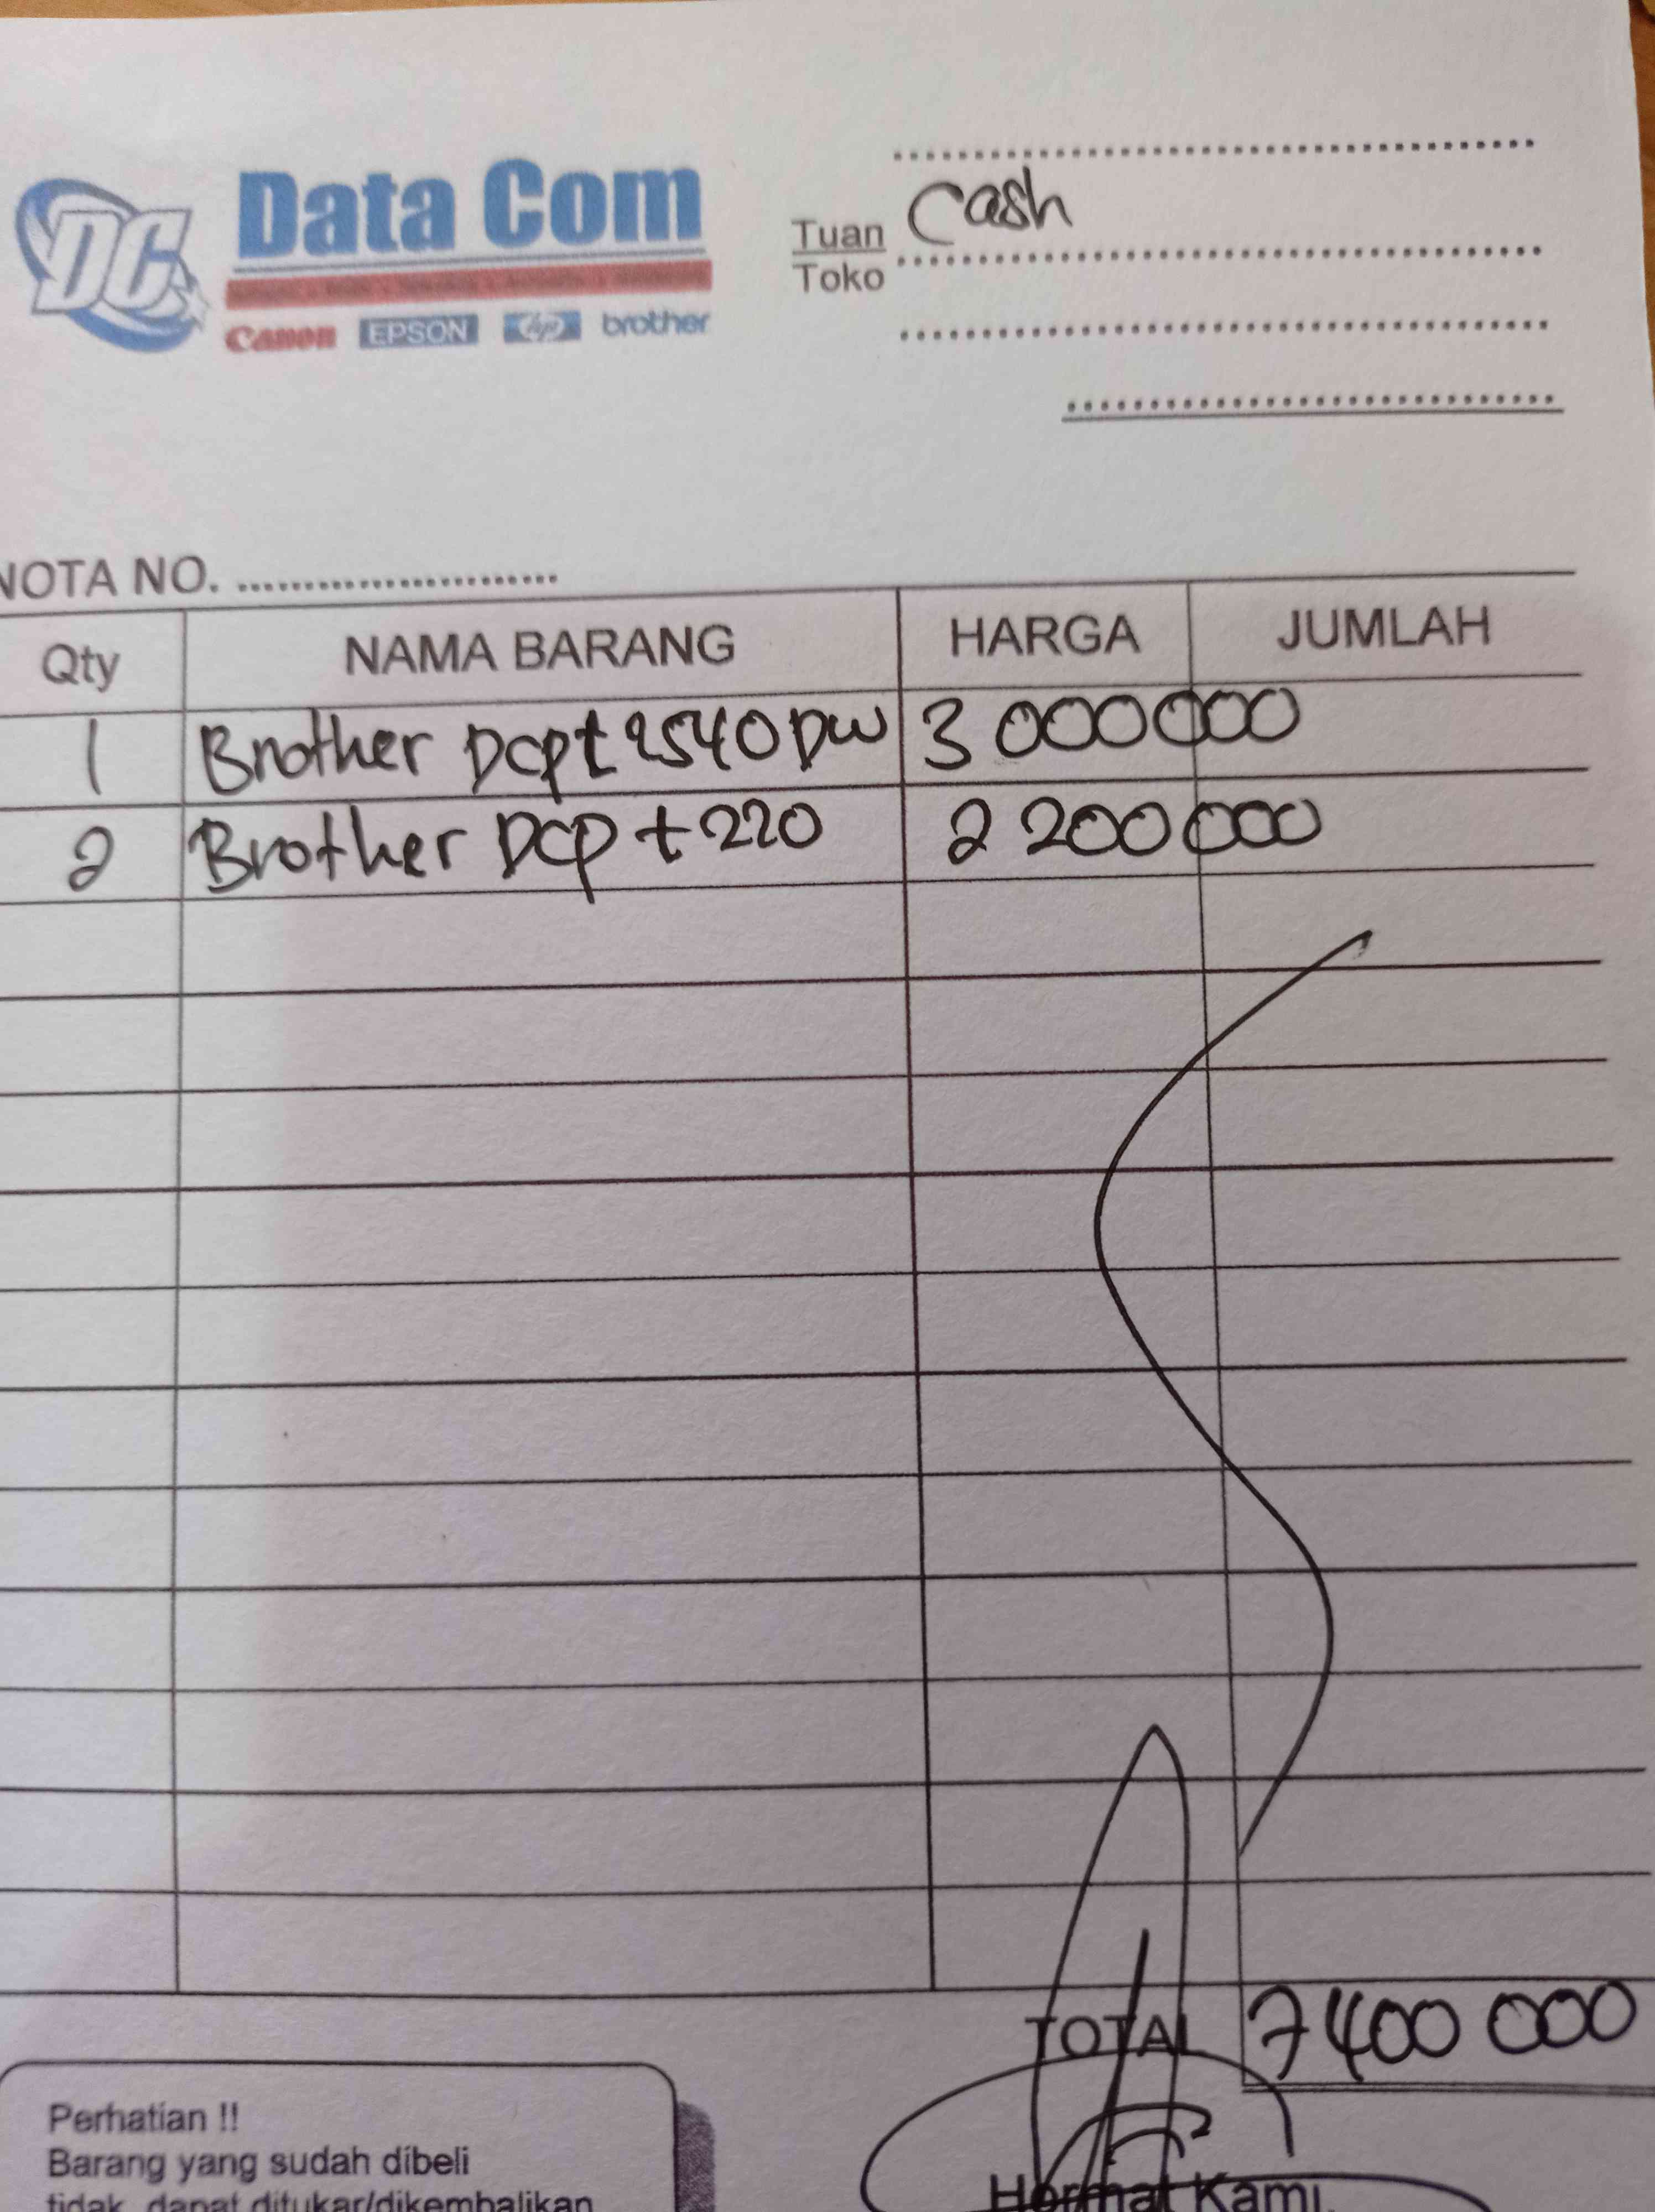 DC
Data Com
Canon EPSON hp brother
Cash
Tuan
Toko
NOTA NO.
Qty NAMA BARANG HARGA JUMLAH
1 Brother Dcp t 2540 DW 3 000 000
2 Brother Dcp t 220 2 200 000
TOTAL 7 400 000
Perhatian !!
Barang yang sudah dibeli
tidak dapat ditukar/dikembalikan
Hormat Kami,